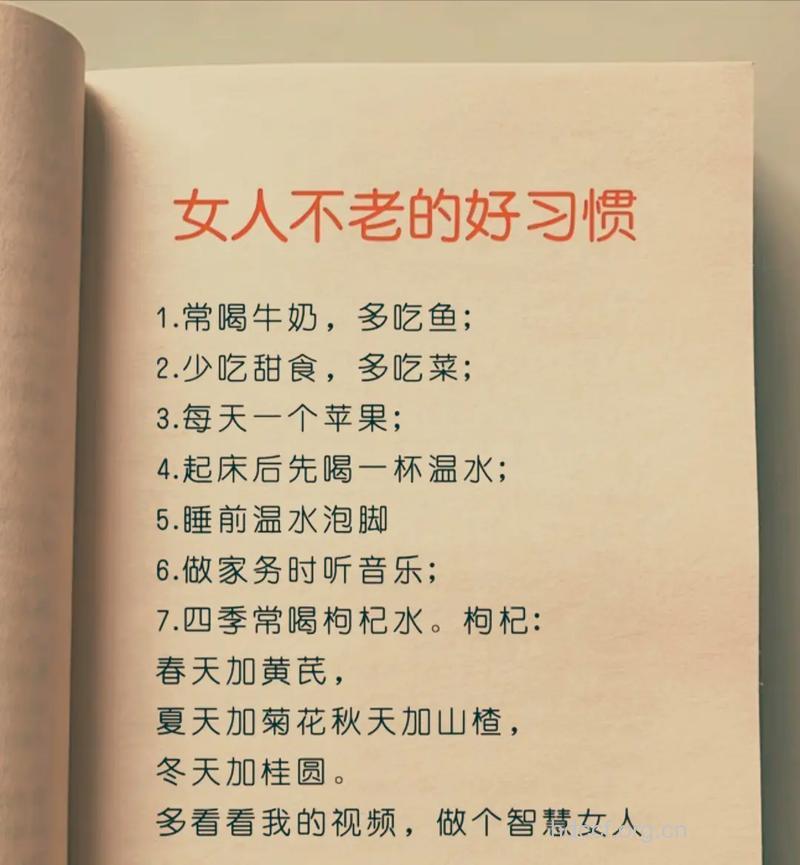 女人不老的好习惯
1.常喝牛奶，多吃鱼；
2.少吃甜食，多吃菜；
3.每天一个苹果；
4.起床后先喝一杯温水；
5.睡前温水泡脚
6.做家务时听音乐；
7.四季常喝枸杞水。枸杞：
春天加黄芪，
夏天加菊花秋天加山楂，
冬天加桂圆。
多看看我的视频，做个智慧女人